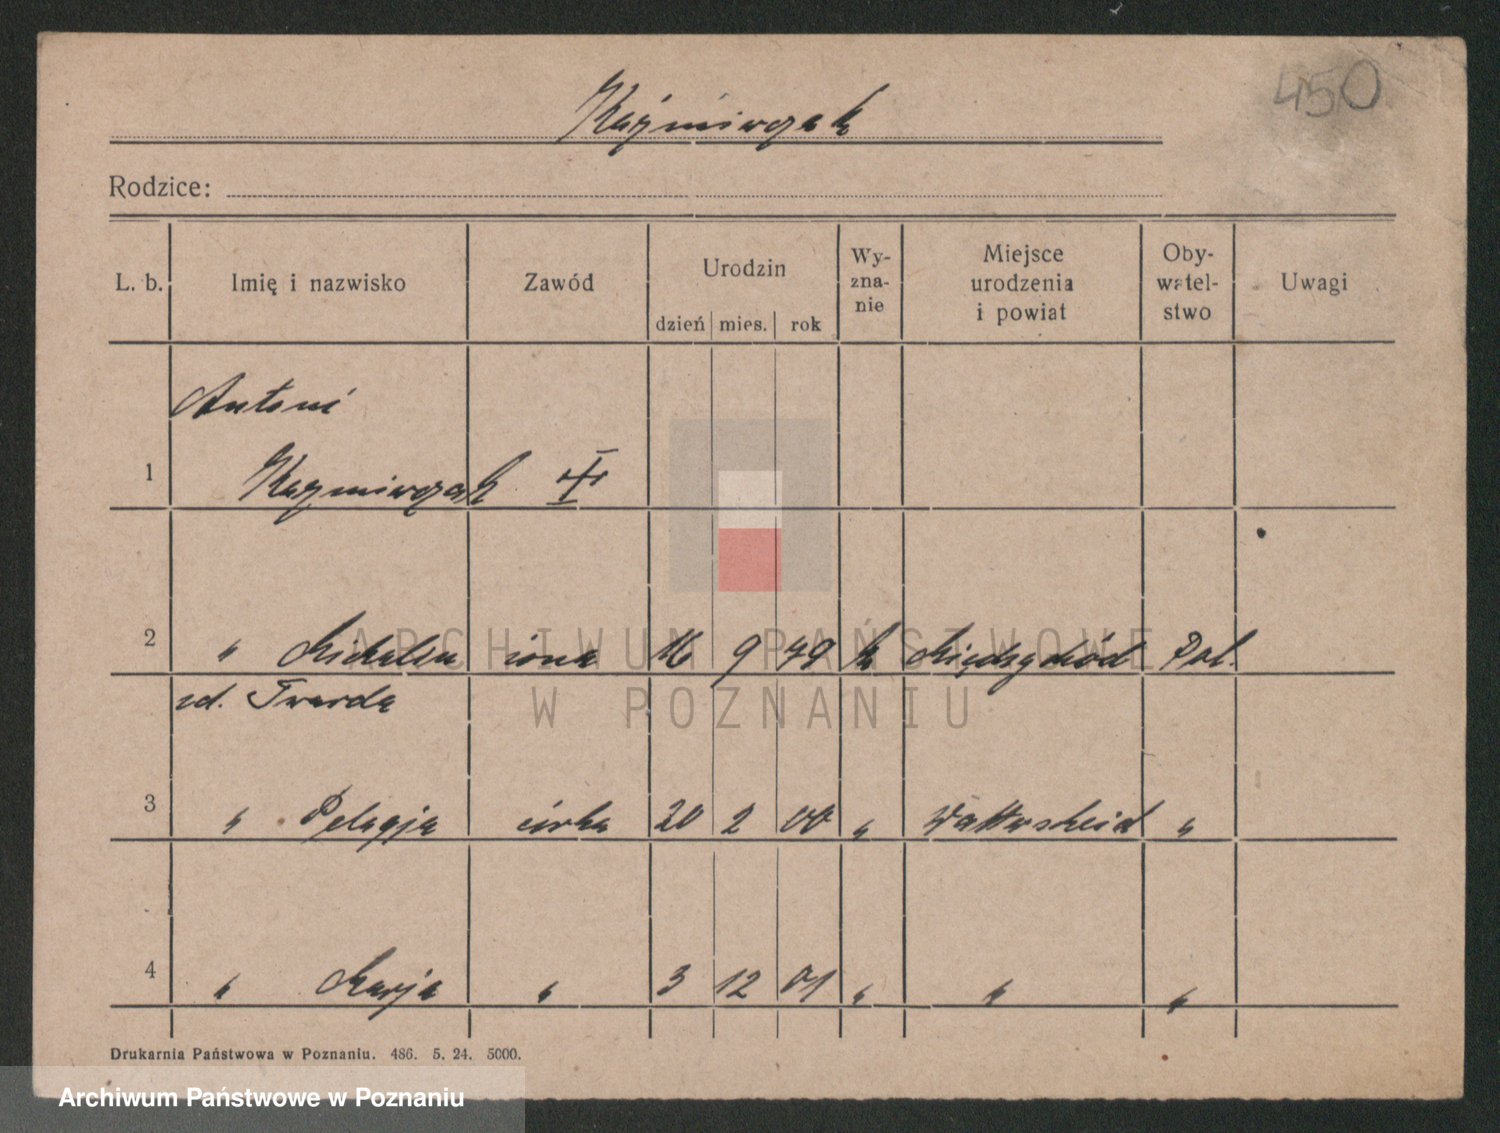 450
Kaźmierczak
Rodzice:
L. b. Imię i nazwisko Zawód Urodzin dzień mies. rok Wy- zna- nie Miejsce urodzenia i powiat Oby- watel- stwo Uwagi
Antoni
1 Kaźmierczak
2 " Michalina żona 16 9 79 k Międzychód Pol.
zd. Twarda
3 " Pelagja córka 20 2 00 " Wattenscheid "
4 " Marja " 3 12 01 " " "
Drukarnia Państwowa w Poznaniu. 486. 5. 24. 5000.
ARCHIWUM PAŃSTWOWE
W POZNANIU
Archiwum Państwowe w Poznaniu